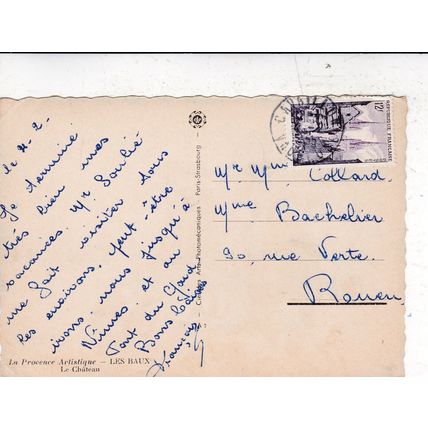 le 4-2-
Je termine
très bien mes
vacances. Mr Soulié
me fait visiter tous
les environs, peut-être
irons-nous jusqu'à
Nîmes et au
Pont du Gard
Bons baisers
François
Mr Mme Collard.
Mme Bachelier
90, rue Verte.
Rouen
12F
REPUBLIQUE FRANÇAISE
Arts Photomécaniques - Paris-Strasbourg
La Provence Artistique — LES BAUX
Le Château